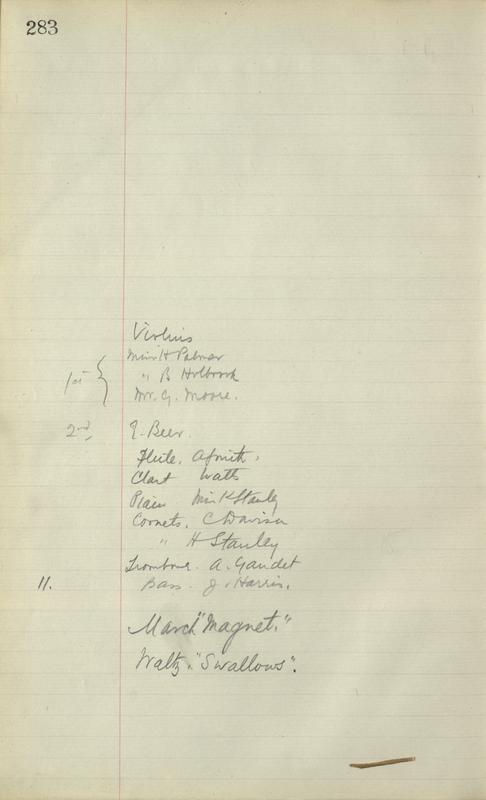 283
Violins
1st { Miss H Palmer
" B Holbrook
Mr. G. Moore.
2nd, E. Beer.
Flute. A Smith,
Clart Watts
Piano Miss K Stanley
Cornets, C Davison
" H Stanley
Trombone. A. Gaudet
11. Bass. J. Harris.
March "Magnet."
Waltz, "Swallows".